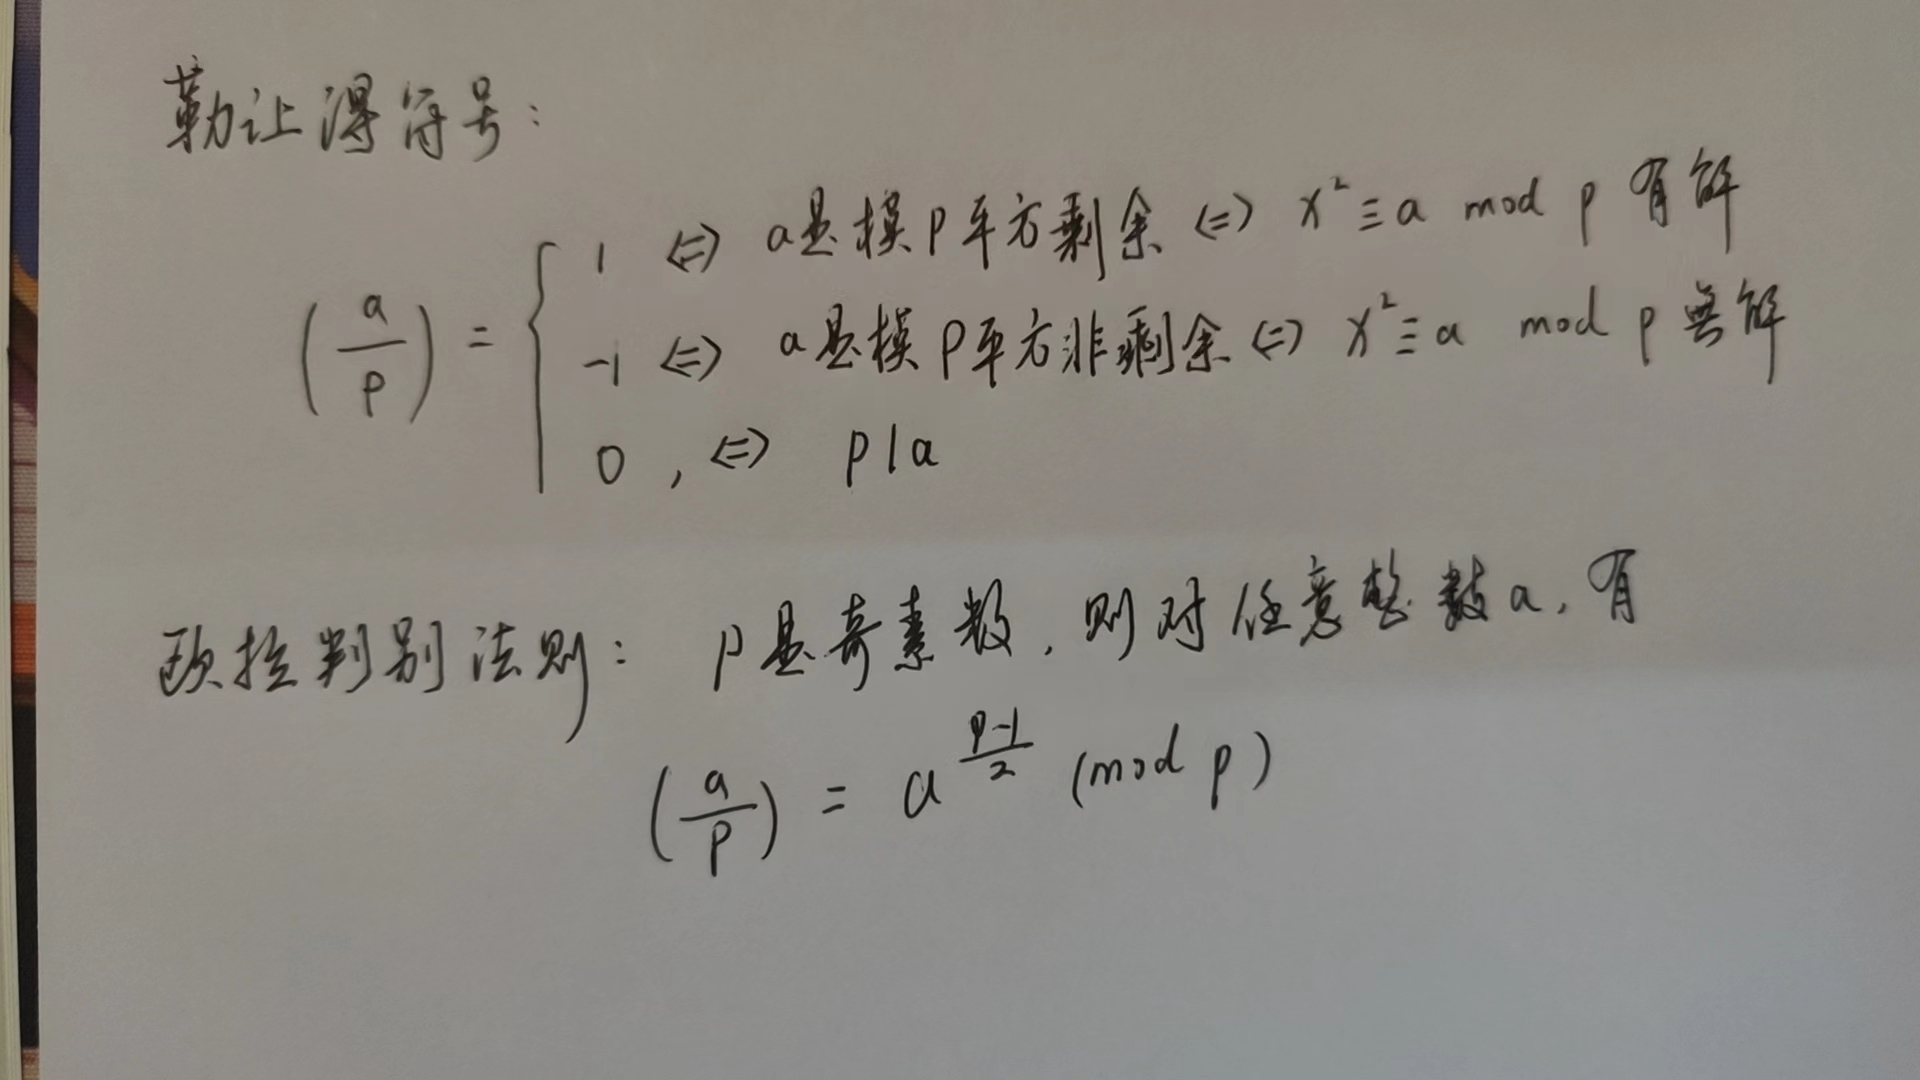 勒让得符号:
(a/p) = { 1 <=> a是模p平方剩余 <=> x² ≡ a mod p 有解
-1 <=> a是模p平方非剩余 <=> x² ≡ a mod p 無解
0 , <=> p|a
欧拉判别法则: p是奇素数, 则对任意整数a, 有
(a/p) = a^((p-1)/2) (mod p)